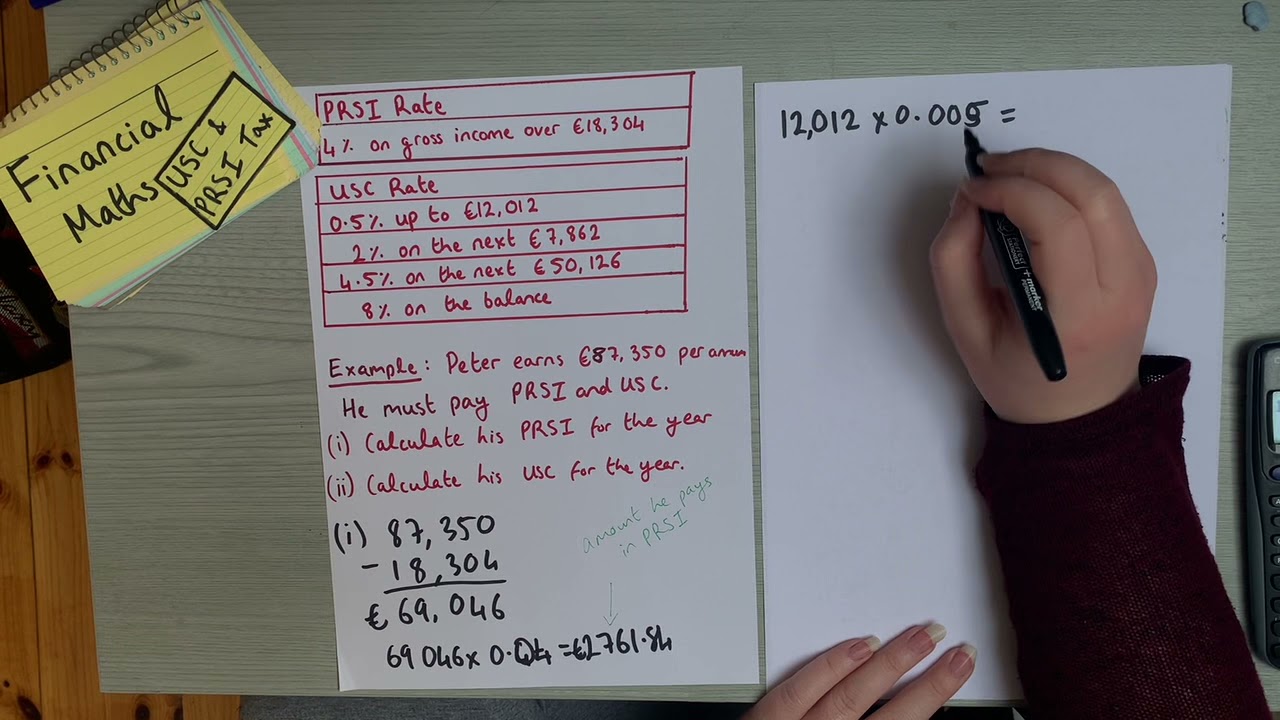 Financial
Maths
USC &
PRSI Tax
PRSI Rate
4% on gross income over €18,304
USC Rate
0.5% up to €12,012
2% on the next €7,862
4.5% on the next €50,126
8% on the balance
Example: Peter earns €87,350 per annum
He must pay PRSI and USC.
(i) Calculate his PRSI for the year
(ii) Calculate his USC for the year.
amount he pays
in PRSI
(i) 87,350
- 18,304
€ 69,046
69046 x 0.04 = €2761.84
12,012 x 0.005 =
marker